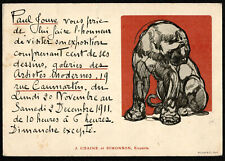 Paul Jouve vous prie
de lui faire l'honneur
de visiter son exposition
comprenant cent de ses
dessins, galeries des
Artistes Modernes, 19
rue Caumartin, du
Lundi 20 Novembre au
Samedi 2 Décembre 1911.
de 10 heures à 6 heures
Dimanche excepté.
J. CHAINE et SIMONSON, Experts.